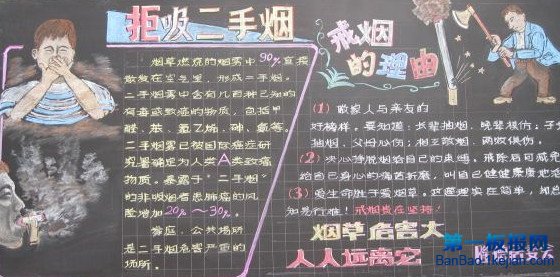 拒吸二手烟
烟草燃烧的烟雾中90%直接
散发在空气里，形成二手烟。
二手烟雾中含有几百种已知的
有毒或致癌的物质，包括甲
醛、苯、氯乙烯、砷、氨等。
二手烟雾已被国际癌症研
究署确定为人类A类致癌
物质。暴露于“二手烟”
的非吸烟者患肺癌的风
险增加20%～30%。
家庭、公共场所
是二手烟危害严重的
场所。
戒烟
的理由
(1) 做家人与亲友的
好榜样。要知道：长辈抽烟，晚辈模仿；子
抽烟，父母心伤；相互敬烟，两败俱伤。
(2) 决心挣脱烟给自己的桌缚。戒除后可减免
给自己身心的痛苦折磨，叫自己健健康康地
(3) 爱生命胜于爱烟草。这道理实在简单，
知是行难！戒烟贵在坚持！
烟草危害大
人人远离它
第一板报网
BanBao.1kejian.com